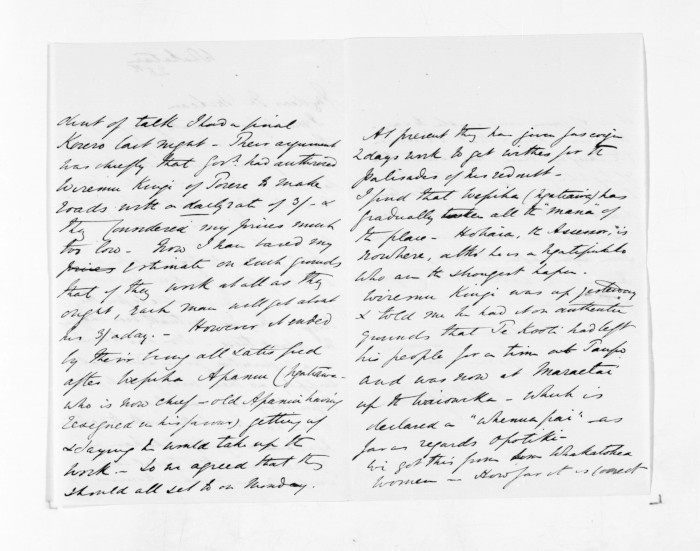 deal of talk I had a final
Korero last night – Their argument
was chiefly that Govt. had authorized
Wiremu Kingi of Torere to make
roads with a daily rate of 3/- &
they considered my prices much
too low – Now I have based my
prices estimate on such grounds
that if they work at all as they
ought, each man will get about
his 3/ a day. – However it ended
by their being all satisfied
after Wepiha Apanui (Ngatiawa –
who is now chief – old Apanui having
resigned in his favour) getting up
& saying he would take up the
work. – So we agreed that they
should all set to on Monday.
At present they have given Gascoyne
2 days work to get withes for the
Palisades of his redoubt –
I find that Wepiha (Ngatiawa) has
gradually taken all the "mana" of
the place – Hohaia, the Assessor, is
nowhere, altho' he is a Ngatipukeko
who are the strongest hapu.
Wiremu Kingi was up yesterday
& told me he had it on authentic
grounds that Te Kooti had left
his people for a time at Taupo
and was now at Maraetai
up the Waioweka – which is
declared a "whenua pai" – as
far as regards Opotiki –
We got this from some Whakatohea
women – How far it is correct